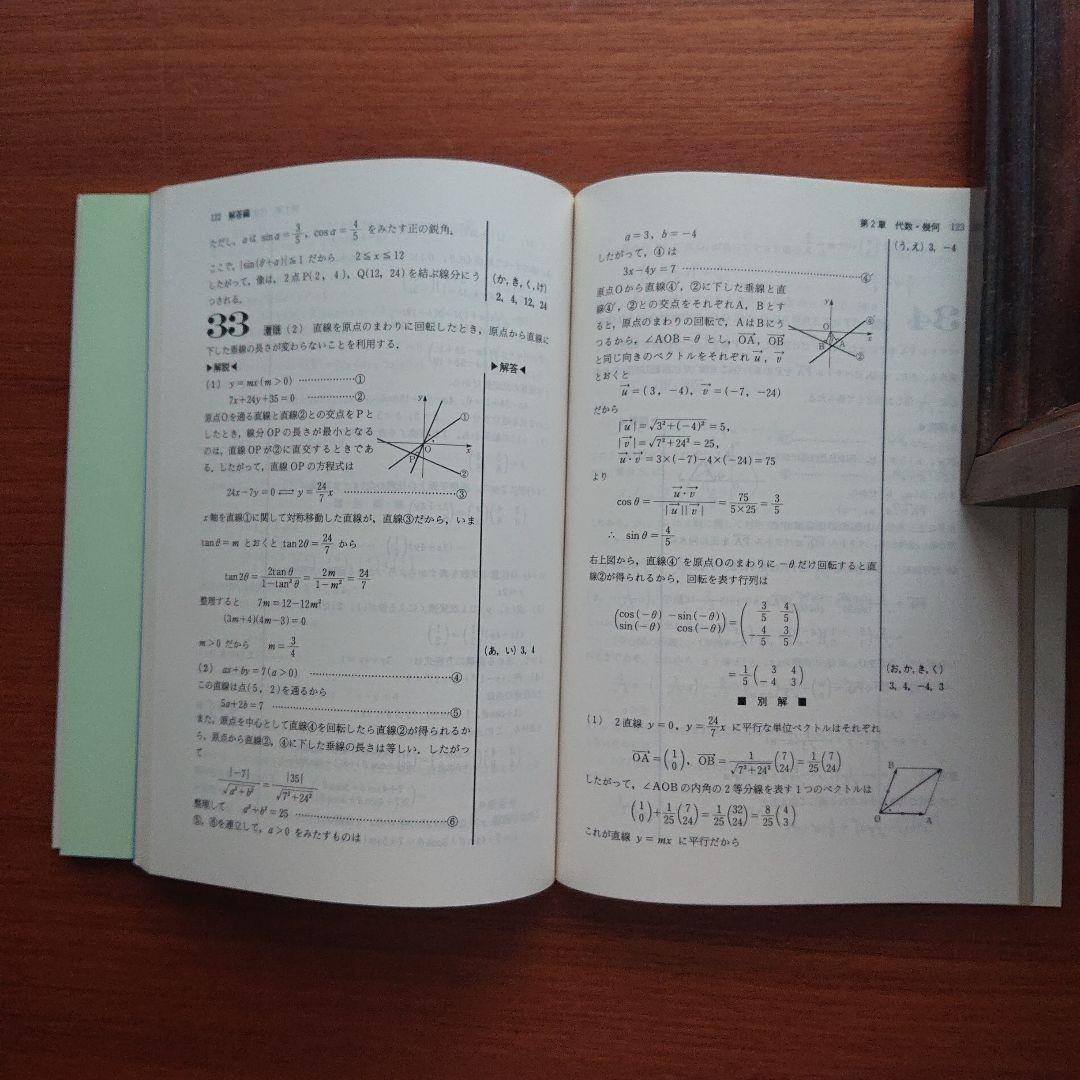 122 解答編
ただし，αは sinα=3/5，cosα=4/5 をみたす正の鋭角．
ここで，|sin(θ+α)|≦1 だから 2≦x≦12
したがって，像は，2点P(2，4)，Q(12，24)を結ぶ線分にう
つされる．
(か，き，く，け)
2，4，12，24
33 (2) 直線を原点のまわりに回転したとき，原点から直線に
下した垂線の長さが変わらないことを利用する．
▶解説◀
▶解答◀
(1) y=mx(m>0) ……………①
7x+24y+35=0 ……………②
原点Oを通る直線と直線②との交点をPと
したとき，線分OPの長さが最小となる
のは，直線OPが②に直交するときであ
る．したがって，直線OPの方程式は
y
①
O
x
P
②
24x-7y=0⟺y=24/7 x ……………③
x軸を直線①に関して対称移動した直線が，直線③だから，いま
tanθ=m とおくと tan2θ=24/7 から
tan2θ=2tanθ/(1-tan²θ)=2m/(1-m²)=24/7
整理すると 7m=12-12m²
(3m+4)(4m-3)=0
m>0 だから m=3/4
(あ，い) 3，4
(2) ax+by=7(a>0) ……………④
この直線は点(5，2)を通るから
5a+2b=7 ……………⑤
また，原点を中心として直線④を回転したら直線②が得られるか
ら，原点から直線②，④に下した垂線の長さは等しい．したがっ
て
|-7|/√(a²+b²)=|35|/√(7²+24²)
整理して a²+b²=25 ……………⑥
⑤，⑥を連立して，a>0 をみたすものは
第2章 代数・幾何 123
a=3，b=-4
(う，え) 3，-4
したがって，④は
3x-4y=7 ……………④′
原点Oから直線④′，②に下した垂線と直
線④′，②との交点をそれぞれA，Bとす
ると，原点のまわりの回転で，AはBにう
つるから，∠AOB=θ とし，OA→，OB→
と同じ向きのベクトルをそれぞれ u→，v→
とおくと
y
④′
O
x
B
A
②
u→=(3，-4)，v→=(-7，-24)
だから
|u→|=√(3²+(-4)²)=5，
|v→|=√(7²+24²)=25，
u→・v→=3×(-7)-4×(-24)=75
より
cosθ=u→・v→/(|u→||v→|)=75/(5×25)=3/5
∴ sinθ=4/5
右上図から，直線④′を原点Oのまわりに -θ だけ回転すると直
線②が得られるから，回転を表す行列は
(cos(-θ) -sin(-θ)
sin(-θ) cos(-θ))=(3/5 4/5
-4/5 3/5)
=1/5(3 4
-4 3)
(お，か，き，く)
3，4，-4，3
■ 別 解 ■
(1) 2直線 y=0，y=24/7 x に平行な単位ベクトルはそれぞれ
OA→=(1 0)，OB→=1/√(7²+24²)(7 24)=1/25(7 24)
したがって，∠AOBの内角の2等分線を表す1つのベクトルは
(1 0)+1/25(7 24)=1/25(32 24)=8/25(4 3)
これが直線 y=mx に平行だから
B
O
A